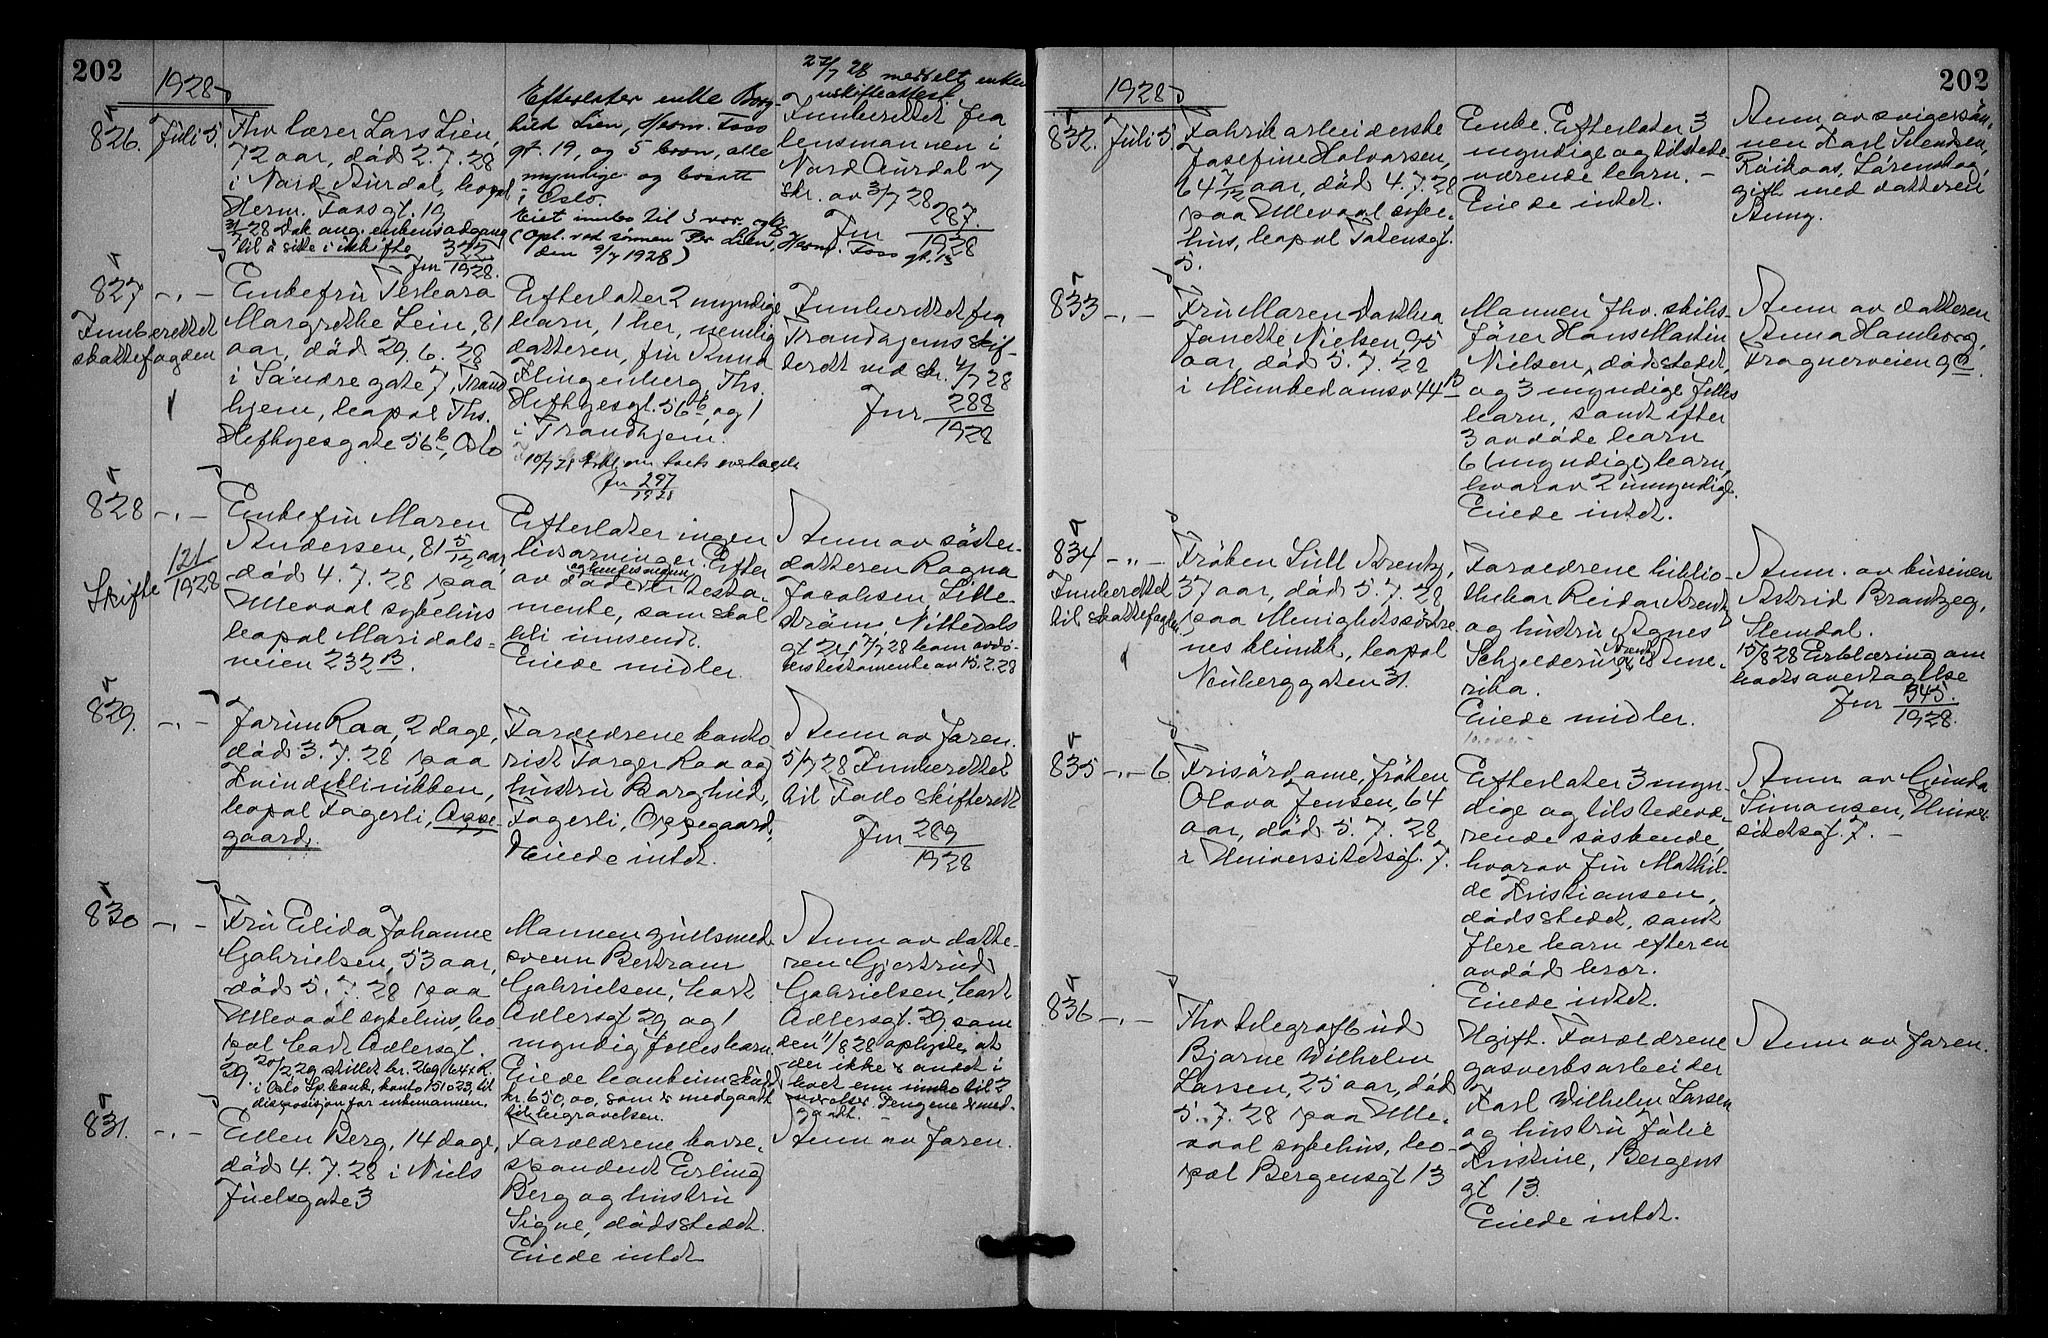 202
1928
826. Juli 5.
Fhv lærer Lars Lien,
72 aar, død 2.7.28
i Nord Aurdal, bopel
Herm. Fossgt. 19
3/8 28 Dok ang. enkens adgang
til å sitte i uskifte
Jnr 322/1928.
Efterlater enke Borg-
hild Lien, Herm. Foss
gt. 19, og 5 barn, alle
myndige og bosatt
i Oslo.
Eiet innbo til
(Opl. ved sønnen Per Lien, Herm. Foss gt. 13
den 9/7 1928)
27/7 28 meddelt enken
uskifteattest
Innberettet fra
lensmannen i
Nord Aurdal v
skr. av 3/7 28
Jnr 287./1928
827 -"-
Innberettet
skattefogden
Enkefru
Margrethe Lein, 81
aar, død 29.6.28
i Søndregate 7, Trond
hjem, bopel Ths.
Heftyesgate 56b, Oslo
Efterlater 2 myndige
barn, 1 her, nemlig
datteren, fru Knud
Klingenberg, Ths.
Heftyesgt. 56b, og 1
i Trondhjem.
10/7 28 Erkl. om boets overtagelse
Jnr 297/1928
Innberettet fra
Trondhjems skif-
terett ved skr. 4/7 28
Jnr 288/1928
828 -"-
Skifte 121/1928
Enkefru Maren
Andersen, 81 5/12 aar,
død 4.7.28 paa
Ullevaal sykehus
bopel Maridals-
veien 232B.
Efterlater ingen
livsarvinger. Efter
av døde er testa-
mente, som skal
bli innsendt.
Eiede midler.
Anm av søster-
datteren Ragna
Jacobsen Lille-
strøm, Nittedals
gt 24. 7/7 28 kom avdø-
des testamente av 15.2.28
829. -"-
Jorun Raa, 2 dage,
død 3.7.28 paa
Kvindeklinikken,
bopel Fagerli, Oppe-
gaard.
Forældrene konto
rist Torger Raa og
hustru Borghild,
Fagerli, Oppegaard,
Eiede intet.
Anm av faren.
5/7 28 Innberettet
til Follo skifterett
Jnr 289/1928
830 -"-
Fru Elida Johanne
Gabrielsen, 53 aar,
død 5.7.28 paa
Ullevaal sykehus, bo
pel Cort Adlersgt.
29. 20/2 29 skiftet kr. 269,64 x R.
i Oslo Sp.bank, konto 151023, til
disposisjon for enkemannen.
Mannen gullsmed
svenn Bertram
Gabrielsen, Cort
Adlersgt 29, og 1
myndig fellesbarn.
Eiede bankinnskudd
kr. 650,00, som er medgaatt
til begravelsen.
Anm av datte-
ren Gjertrud
Gabrielsen, Cort
Adlersgt. 29, som
den 1/8 28 oplyste, at
der ikke er andet i
boet enn innbo til 2
værelser. Pengene er med-
gaatt.
831. -"-
Ellen Berg, 14 dage,
død 4.7.28 i Niels
Juelsgate 3
Forældrene korre-
spondent Erling
Berg og hustru
Signe, dødsstedet.
Eiede intet
Anm av faren.
202
1928
832. Juli 5.
Fabrikarbeiderske
Josefine Halvorsen,
64 7/12 aar, død 4.7.28
paa Ullevaal syke-
hus, bopel Totensgt.
5.
Enke. Efterlater 3
myndige og tilstede-
værende barn. -
Eiede intet.
Anm. av svigersøn-
nen Karl Svendsen,
Røikaas, Lørenskog,
gift med datteren
Anny.
833 -"-
Fru Maren Dorthea
Janette Nielsen 95
aar, død 5.7.28
i Munkedamsv 44B
Mannen fhv. skibs-
fører Hans Martin
Nielsen, dødsstedet,
og 3 myndige felles
barn, samt efter
3 avdøde barn
6 (myndige) barn,
hvorav 2 umyndige.
Eiede intet.
Anm av datteren
Anna Hamborg,
Frognerveien 9C.
834 -"-
Innberettet
til skattefogden
Frøken Lull Arentz,
37 aar, død 5.7.28
paa Menighetssøstre
nes klinikk, bopel
Neuberggaten 31.
Forældrene biblio-
thekar Reidar Arentz
og hustru Agnes
Schjelderup Arentz, Ame-
rika.
Eiede midler.
Anm. av kusinen
Astrid Brantzeg,
Slemdal.
15/8 28 Erklæring om
boets overtagelse
Jnr 345./1928.
835 -"- 6.
Frisørdame, frøken
Olava Jensen, 64
aar, død 5.7.28,
i Universitetsgt. 7.
Efterlater 3 myn-
dige og tilstedevæ-
rende søskende,
hvorav fru Mathil-
de Kristiansen,
dødsstedet, samt
flere barn efter en
avdød bror.
Eiede intet.
Anm av Gunda
Simonsen, Univer-
sitetsgt. 7. -
836 -"-
Fhv telegrafbud
Bjarne Wilhelm
Larsen, 25 aar, død
5.7.28 paa Ulle-
vaal sykehus, bo-
pel Bergensgt 13
Ugift. Forældrene
gasverksarbeider
Karl Wilhelm Larsen
og hustru Julie
Kristine, Bergens
gt 13.
Eiede intet.
Anm av faren.